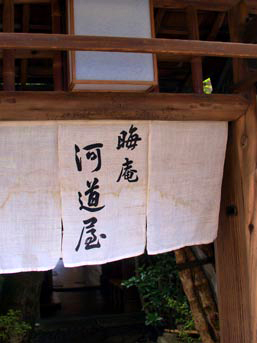 晦庵
河道屋